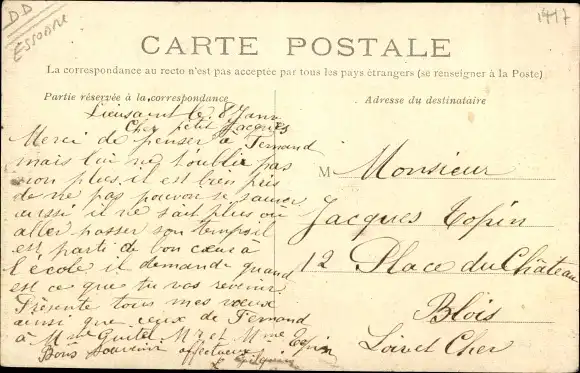 DD
ESSONNE
1917
CARTE POSTALE
La correspondance au recto n'est pas acceptée par tous les pays étrangers (se renseigner à la Poste)
Partie réservée à la correspondance
Adresse du destinataire
Lieusaint le 8 Janv
Cher petit Jacques
Merci de penser à Fernand
mais lui ne t'oublie pas
non plus, il est bien
de ne pas pouvoir se
aussi il ne sait plus où
aller passer son temps il
est parti de bon cœur à
l'école il demande quand
est ce que tu vas revenir
Présente tous mes vœux
ainsi que ceux de Fernand
à Mme Guitel Mr et Mme Topin
Bons souvenir affectueux
M Monsieur
Jacques Topin
12 Place du Château
Blois
Loir et Cher